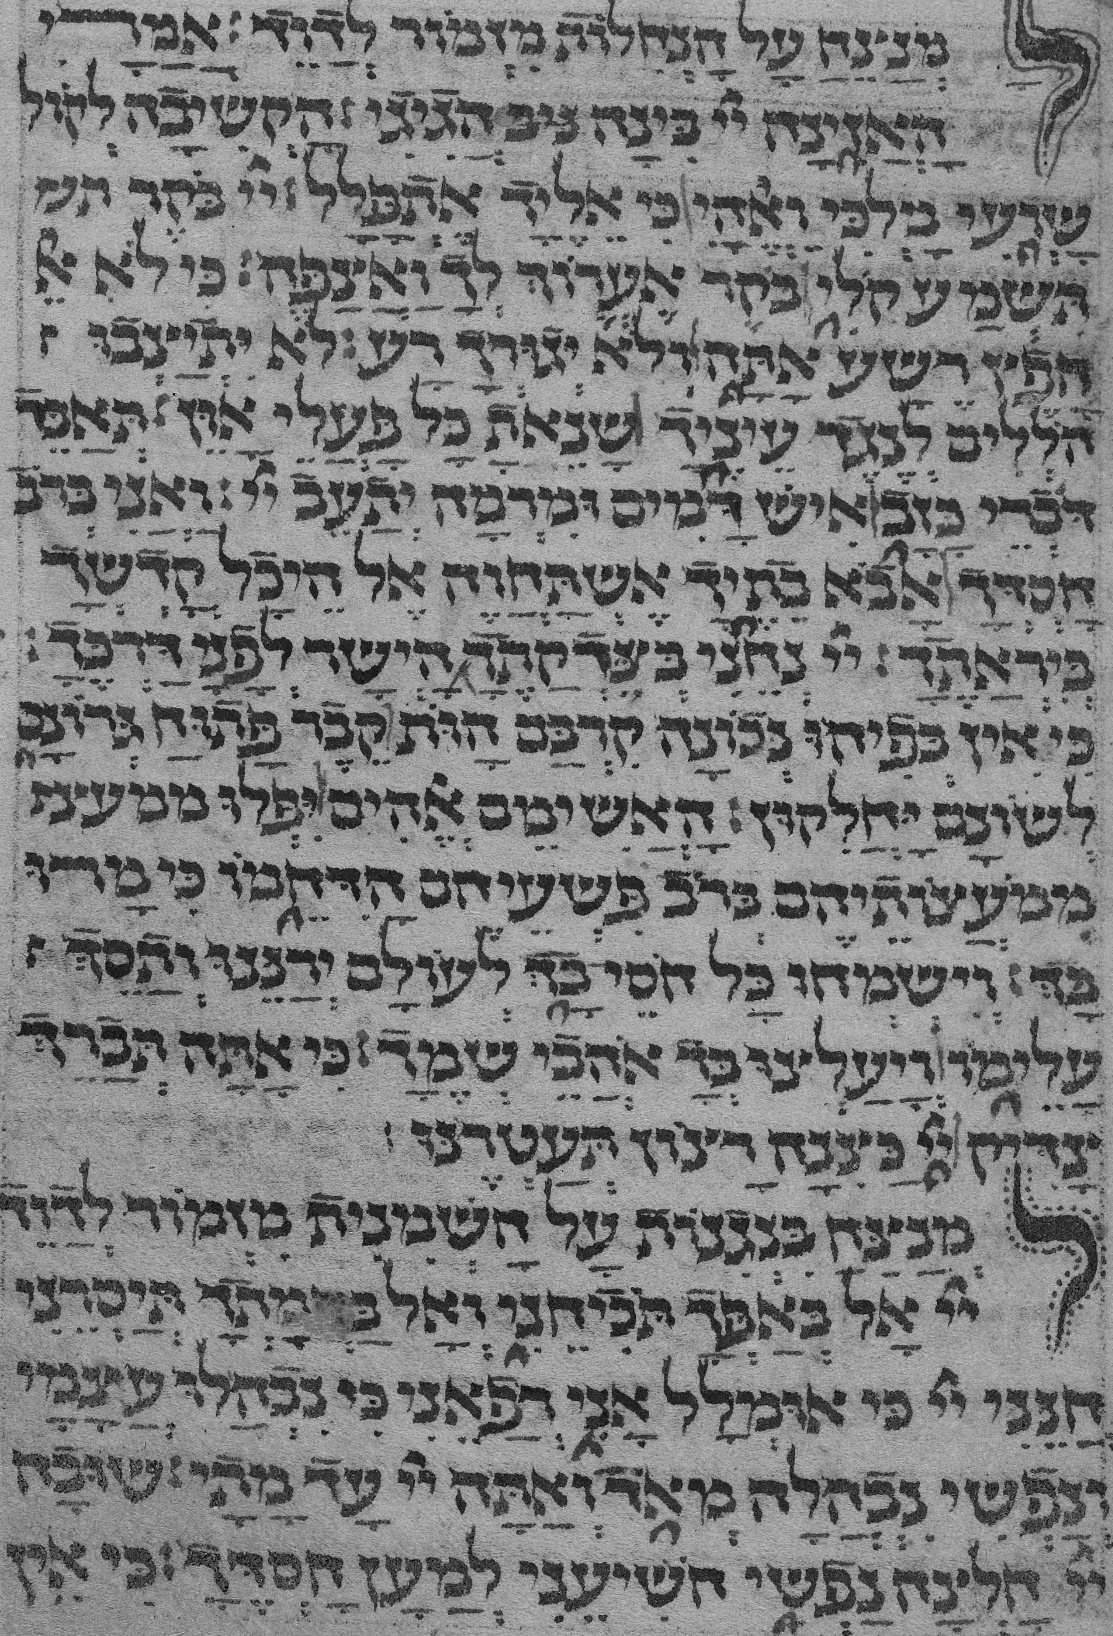 למנצח על הנחלות מזמור לדוד׃ אמרי
האזינה יי בינה בינה הגיגי׃ הקשיבה לקול
שועי מלכי ואלהי כי אליך אתפלל׃ יי בקר תש
תשמע קולי בקר אערוך לך ואצפה׃ כי לא א
חפץ רשע אתה ולא יגורך רע׃ לא יתיצבו
הוללים לנגד עיניך שנאת כל פעלי און׃ תאבד
דברי כזב איש דמים ומרמה יתעב יי׃ ואני ברב
חסדך אבא ביתיך אשתחוה אל היכל קדשך
ביראתך׃ יי נחני בצדקתך הישר לפני דרכך׃
כי אין בפיהו נכונה קרבם הוות קבר פתוח גרונם
לשונם יחליקון׃ האשימם אלהים יפלו ממעצ
ממעצותיהם ברב פשעיהם הדיחמו כי מרו
בך׃ וישמחו כל חסי בך לעולם ירננו ותסך
עלימו ויעלצו בך אהבי שמך׃ כי אתה תברך
צדיק יי כצנה רצון תעטרנו׃
למנצח בנגינות על השמינית מזמור לדוד
יי אל באפך תוכיחני ואל בחמתך תיסרני
חנני יי כי אומלל אני רפאני כי נבהלו עצמי
ונפשי נבהלה מאד ואתה יי עד מתי׃ שובה
יי חלצה נפשי הושיעני למען חסדך׃ כי אין